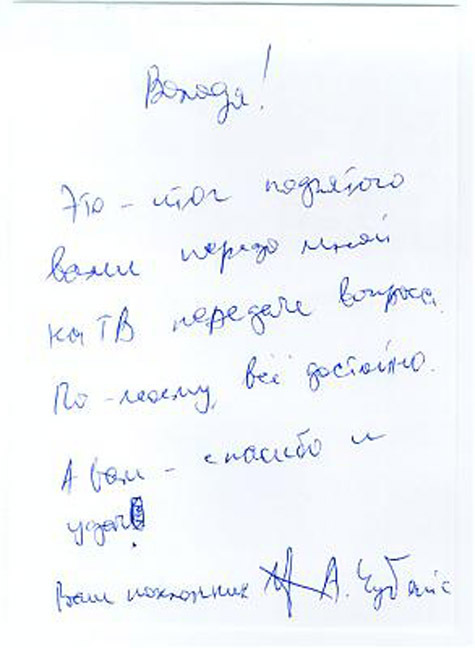 Володя!
Это - итог поднятого
вами передо мной
на ТВ передаче вопроса.
По-моему, всё достойно.
А вам - спасибо и
удач
Ваш поклонник А. Чубайс